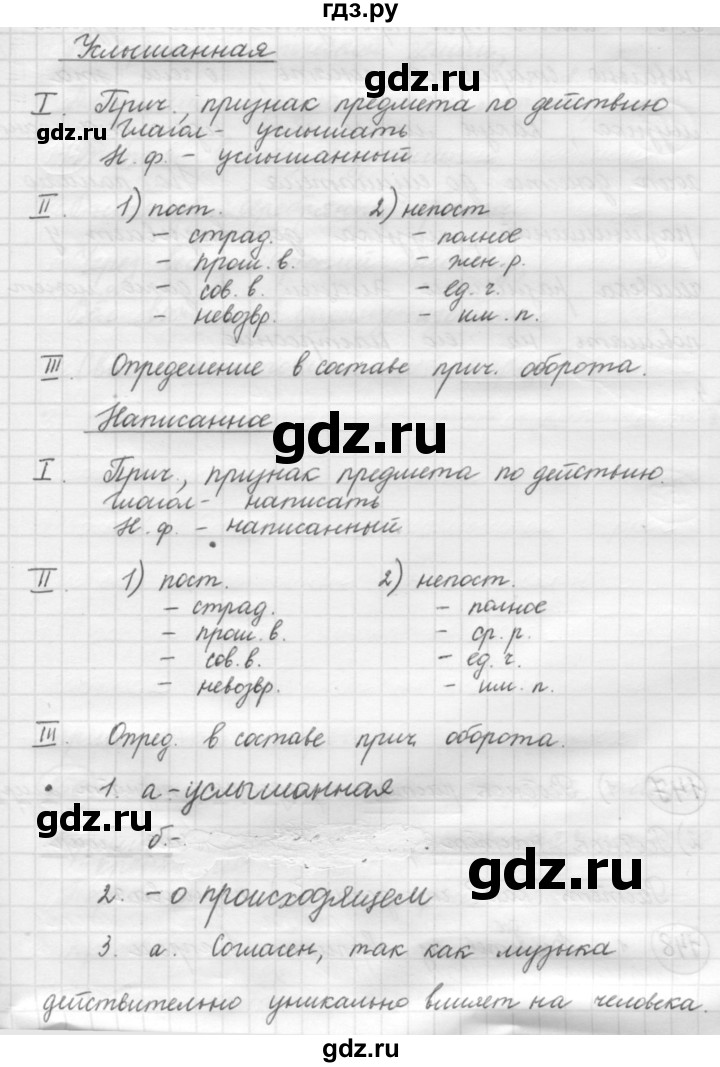 гдз.ру
Услышанная
I. Прич., признак предмета по действию
gdz.ru
Глагол - услышать
gdz.ru
Н. ф. - услышанный
II. 1) пост. 2) непост
- страд. - полное
- прош. в. - жен. р.
- сов. в. - ед. ч.
- невозвр. - им. п.
III. Определение в составе прич. оборота.
Написанное
gdz.ru
I. Прич., признак предмета по действию.
Глагол - написать
Н. ф. - написанный
II 1) пост. 2) непост.
- страд. - полное
- прош. в. - ср. р.
- сов. в. - ед. ч.
- невозвр. - им. п.
III. Опред. в составе прич. оборота.
1. а - услышанная
147
б. -
gdz.ru
2. - о происходящем
148
3. а. Согласен, так как музыка
gdz.ru
действительно уникально влияет на человека.
gdz.ru
gdz.ru